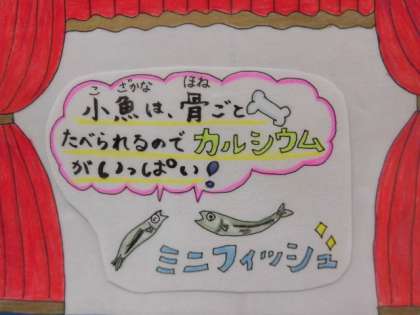 こざかな ほね
小魚は、骨ごと
たべられるので カルシウム
がいっぱい!
ミニフィッシュ